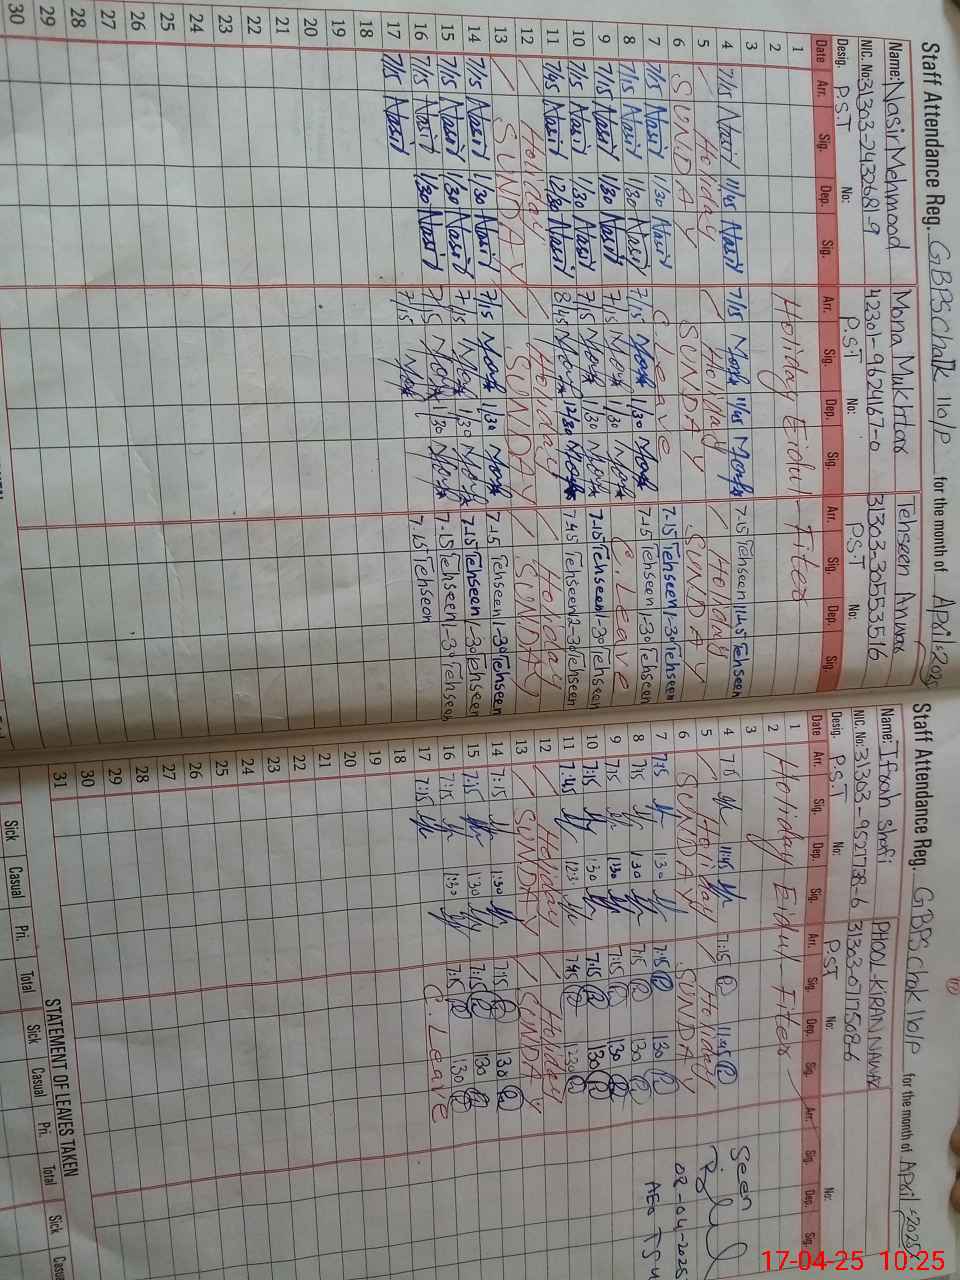 Staff Attendance Reg. GBPS Chak 110/P for the month of April-2025
Name: Nasir Mehmood
Mona Mukhtar
Tehseen Anwar
NIC. No: 31303-7432681-9
42301-9624167-0
31303-3055351-6
Desig. P.S.T No:
P.S.T No:
P.S.T No:
Date Arr. Sig. Dep. Sig. Arr. Sig. Dep. Sig. Arr. Sig. Dep. Sig.
1
2 Holiday Eidul-Fiter
3
4 7/15 Nasir 11/45 Nasir 7/15 11/45 7-15 Tehseen 11-45 Tehseen
5 Holiday Holiday Holiday
6 SUNDAY SUNDAY SUNDAY
7 7/15 Nasir 1/30 Nasir C.Leave 7-15 Tehseen 1-30 Tehseen
8 7/15 Nasir 1/30 Nasir 7/15 1/30 7-15 Tehseen 1-30 Tehseen
9 7/15 Nasir 1/30 Nasir 7/15 1/30 C.Leave
10 7/15 Nasir 1/30 Nasir 7/15 1/30 7-15 Tehseen 1-30 Tehseen
11 7/45 Nasir 12/30 Nasir 8/45 12/30 7-45 Tehseen 12-30 Tehseen
12 Holiday Holiday Holiday
13 SUNDAY SUNDAY SUNDAY
14 7/15 Nasir 1/30 Nasir 7/15 1/30 7-15 Tehseen 1-30 Tehseen
15 7/15 Nasir 1/30 Nasir 7/15 1/30 7-15 Tehseen 1-30 Tehseen
16 7/15 Nasir 1/30 Nasir 7/15 1/30 7-15 Tehseen 1-30 Tehseen
17 7/15 Nasir 7/15 7-15 Tehseen
18
19
20
21
22
23
24
25
26
27
28
29
30
Staff Attendance Reg. GBPS Chak 110/P for the month of April-2025
Name: Ifrah Shafi
PHOOL-KIRAN NAWAZ
NIC. No: 31303-9527738-6
Desig. P.S.T No:
P.ST No:
No:
Date Arr. Sig. Dep. Sig. Arr. Sig. Dep. Sig. Arr. Sig. Dep. Sig.
1
2 Holiday Eidul-Fiter
3
4 11:45 7:15 11:45
5 Holiday Holiday
6 SUNDAY SUNDAY
7 7:15 1:30 7:15 1:30
8 7:15 1:30 7:15 1:30
9 7:15 1:30 7:15 1:30
10 7:15 1:30 7:15 1:30
11 7:45 7:45 12:30
12 Holiday Holiday
13 SUNDAY SUNDAY
14 7:15 1:30 7:15 1:30
15 7:15 1:30 7:15 1:30
16 7:15 1:30 7:15 1:30
17 7:15 C.Leave
18
19
20
21
22
23
24
25
26
27
28
29
30
31
Seen
08-04-2025
AEO
STATEMENT OF LEAVES TAKEN
Sick Casual Pri. Total Sick Casual Pri. Total Sick
17-04-25 10:25